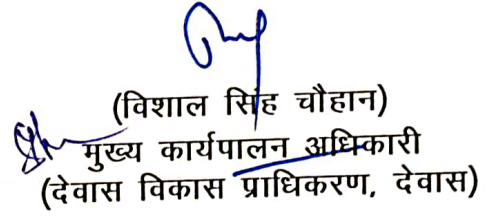 (विशाल सिंह चौहान)
मुख्य कार्यपालन अधिकारी
(देवास विकास प्राधिकरण, देवास)